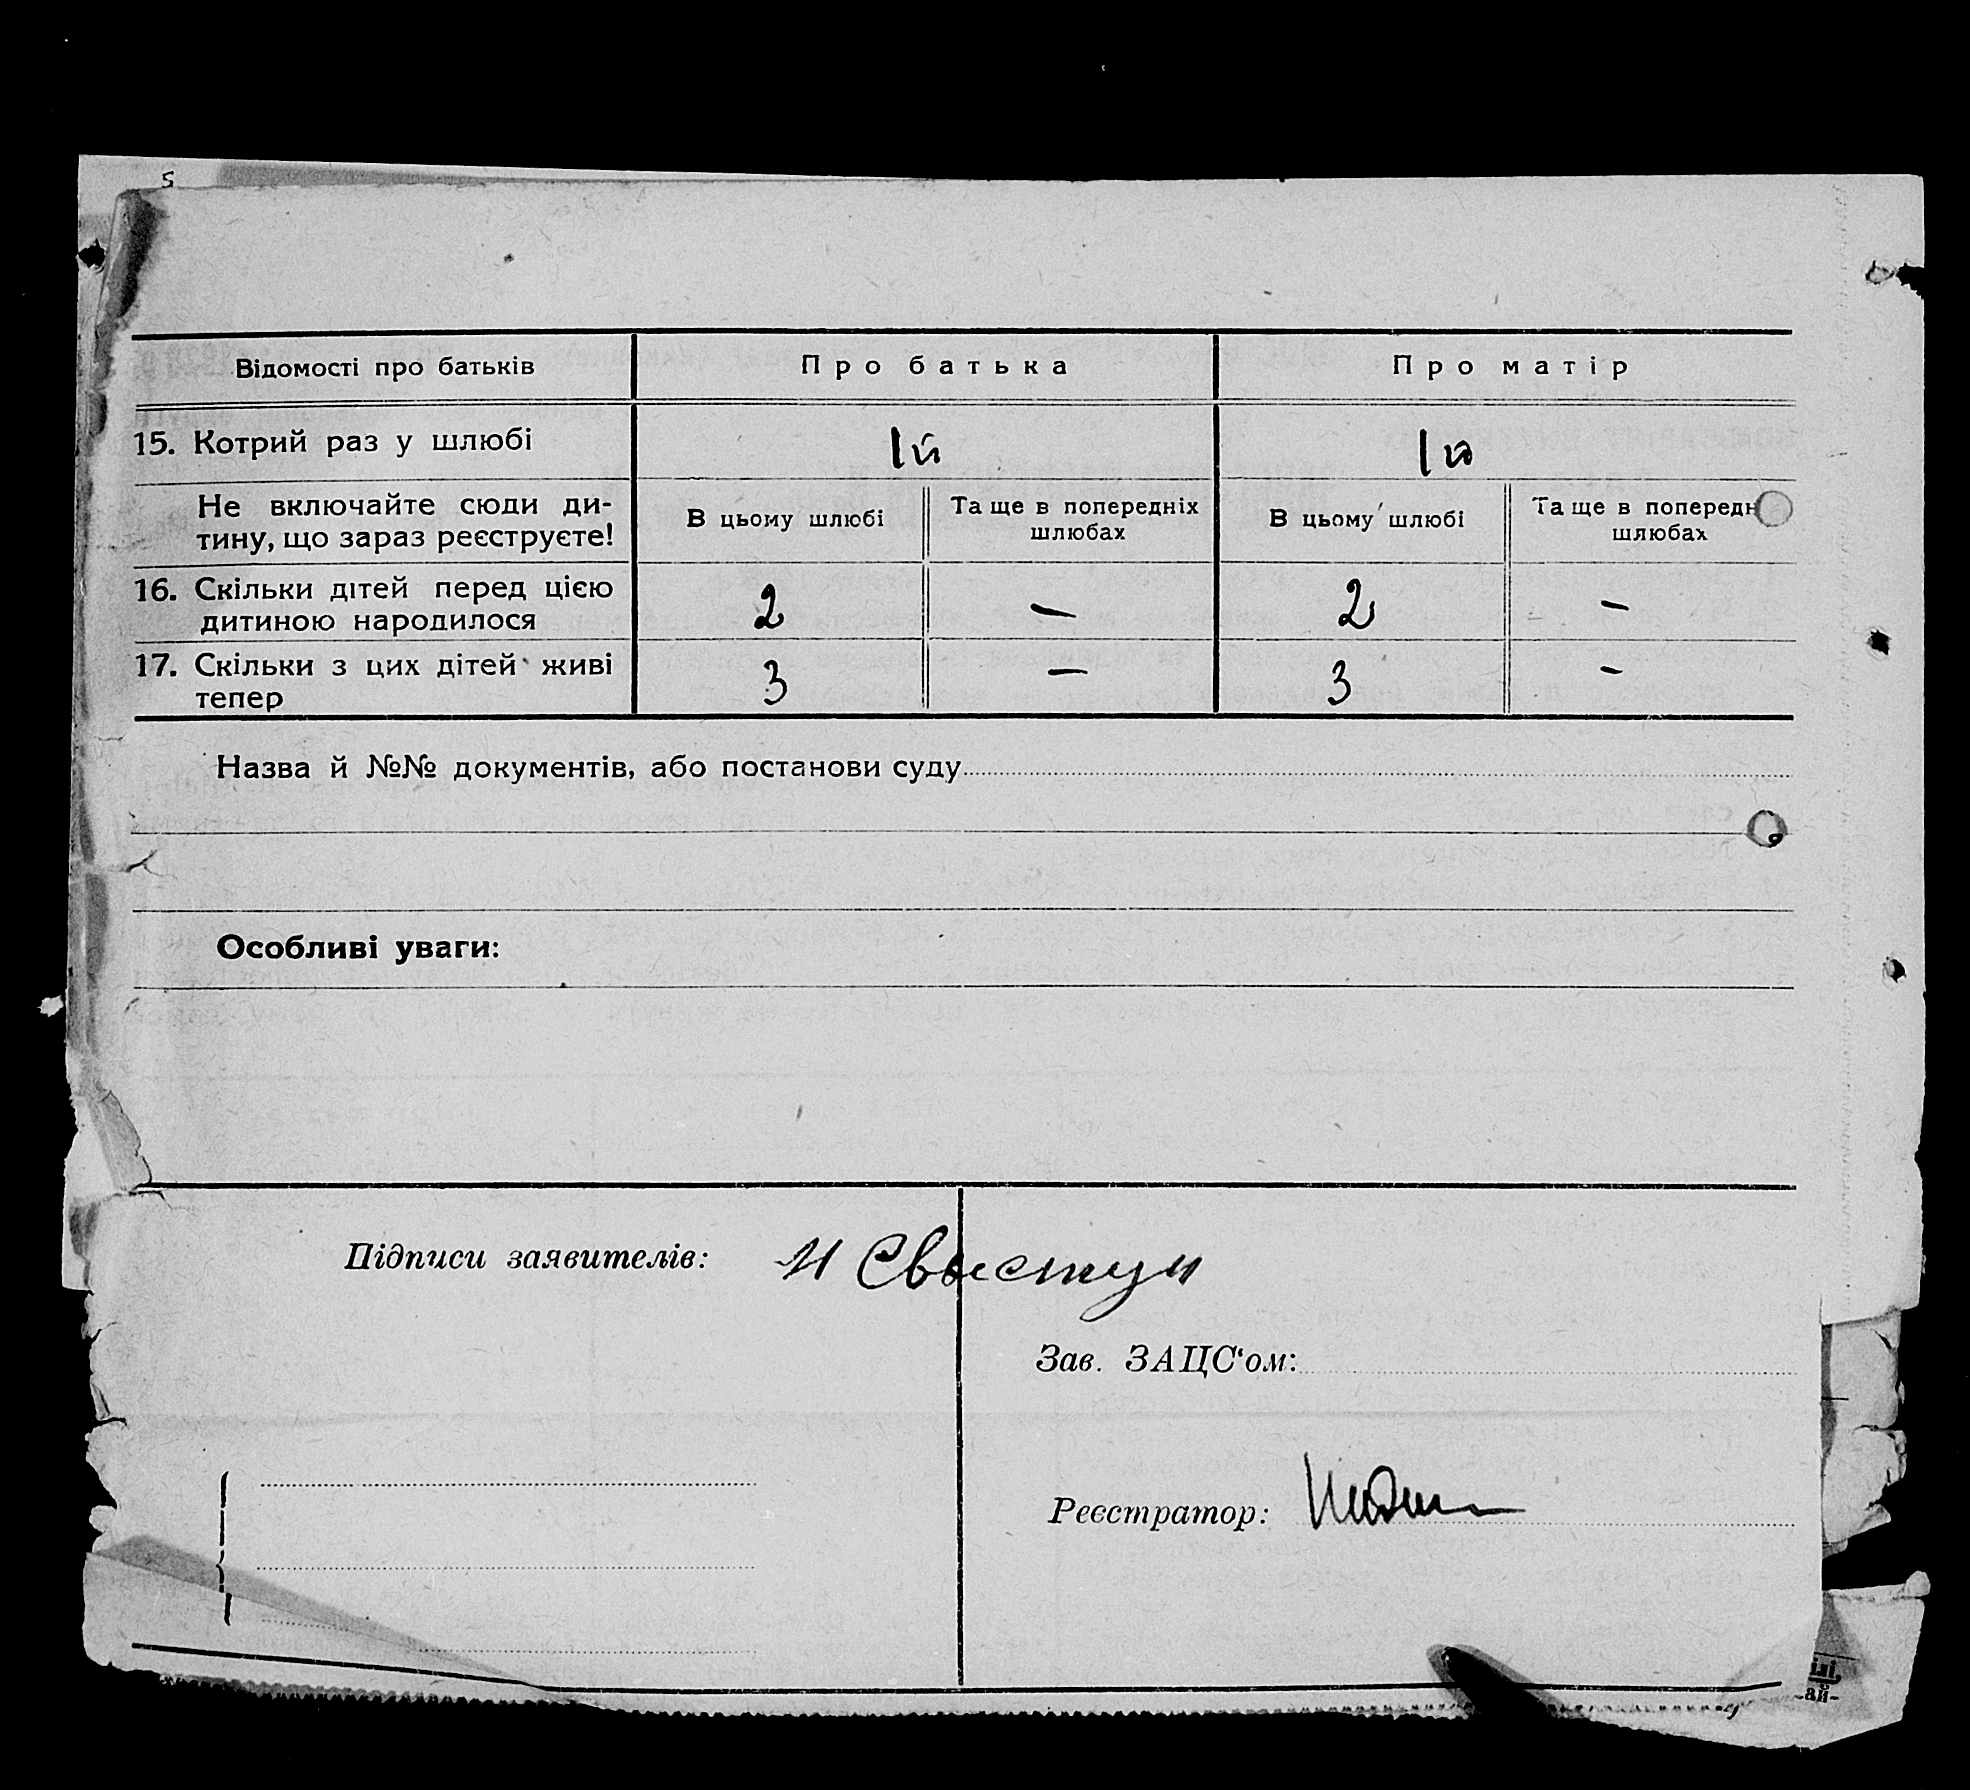 5
Відомості про батьків
Про батька
Про матір
15. Котрий раз у шлюбі
1й
1й
Не включайте сюди ди-
тину, що зараз реєструєте!
В цьому шлюбі
Та ще в попередніх
шлюбах
В цьому шлюбі
Та ще в попередн
шлюбах
16. Скільки дітей перед цією
дитиною народилося
2
—
2
—
17. Скільки з цих дітей живі
тепер
3
—
3
—
Назва й №№ документів, або постанови суду
Особливі уваги:
Підписи заявителів: И Свыстун
Зав. ЗАЦС'ом:
Реєстратор:
ілі,
-ай-